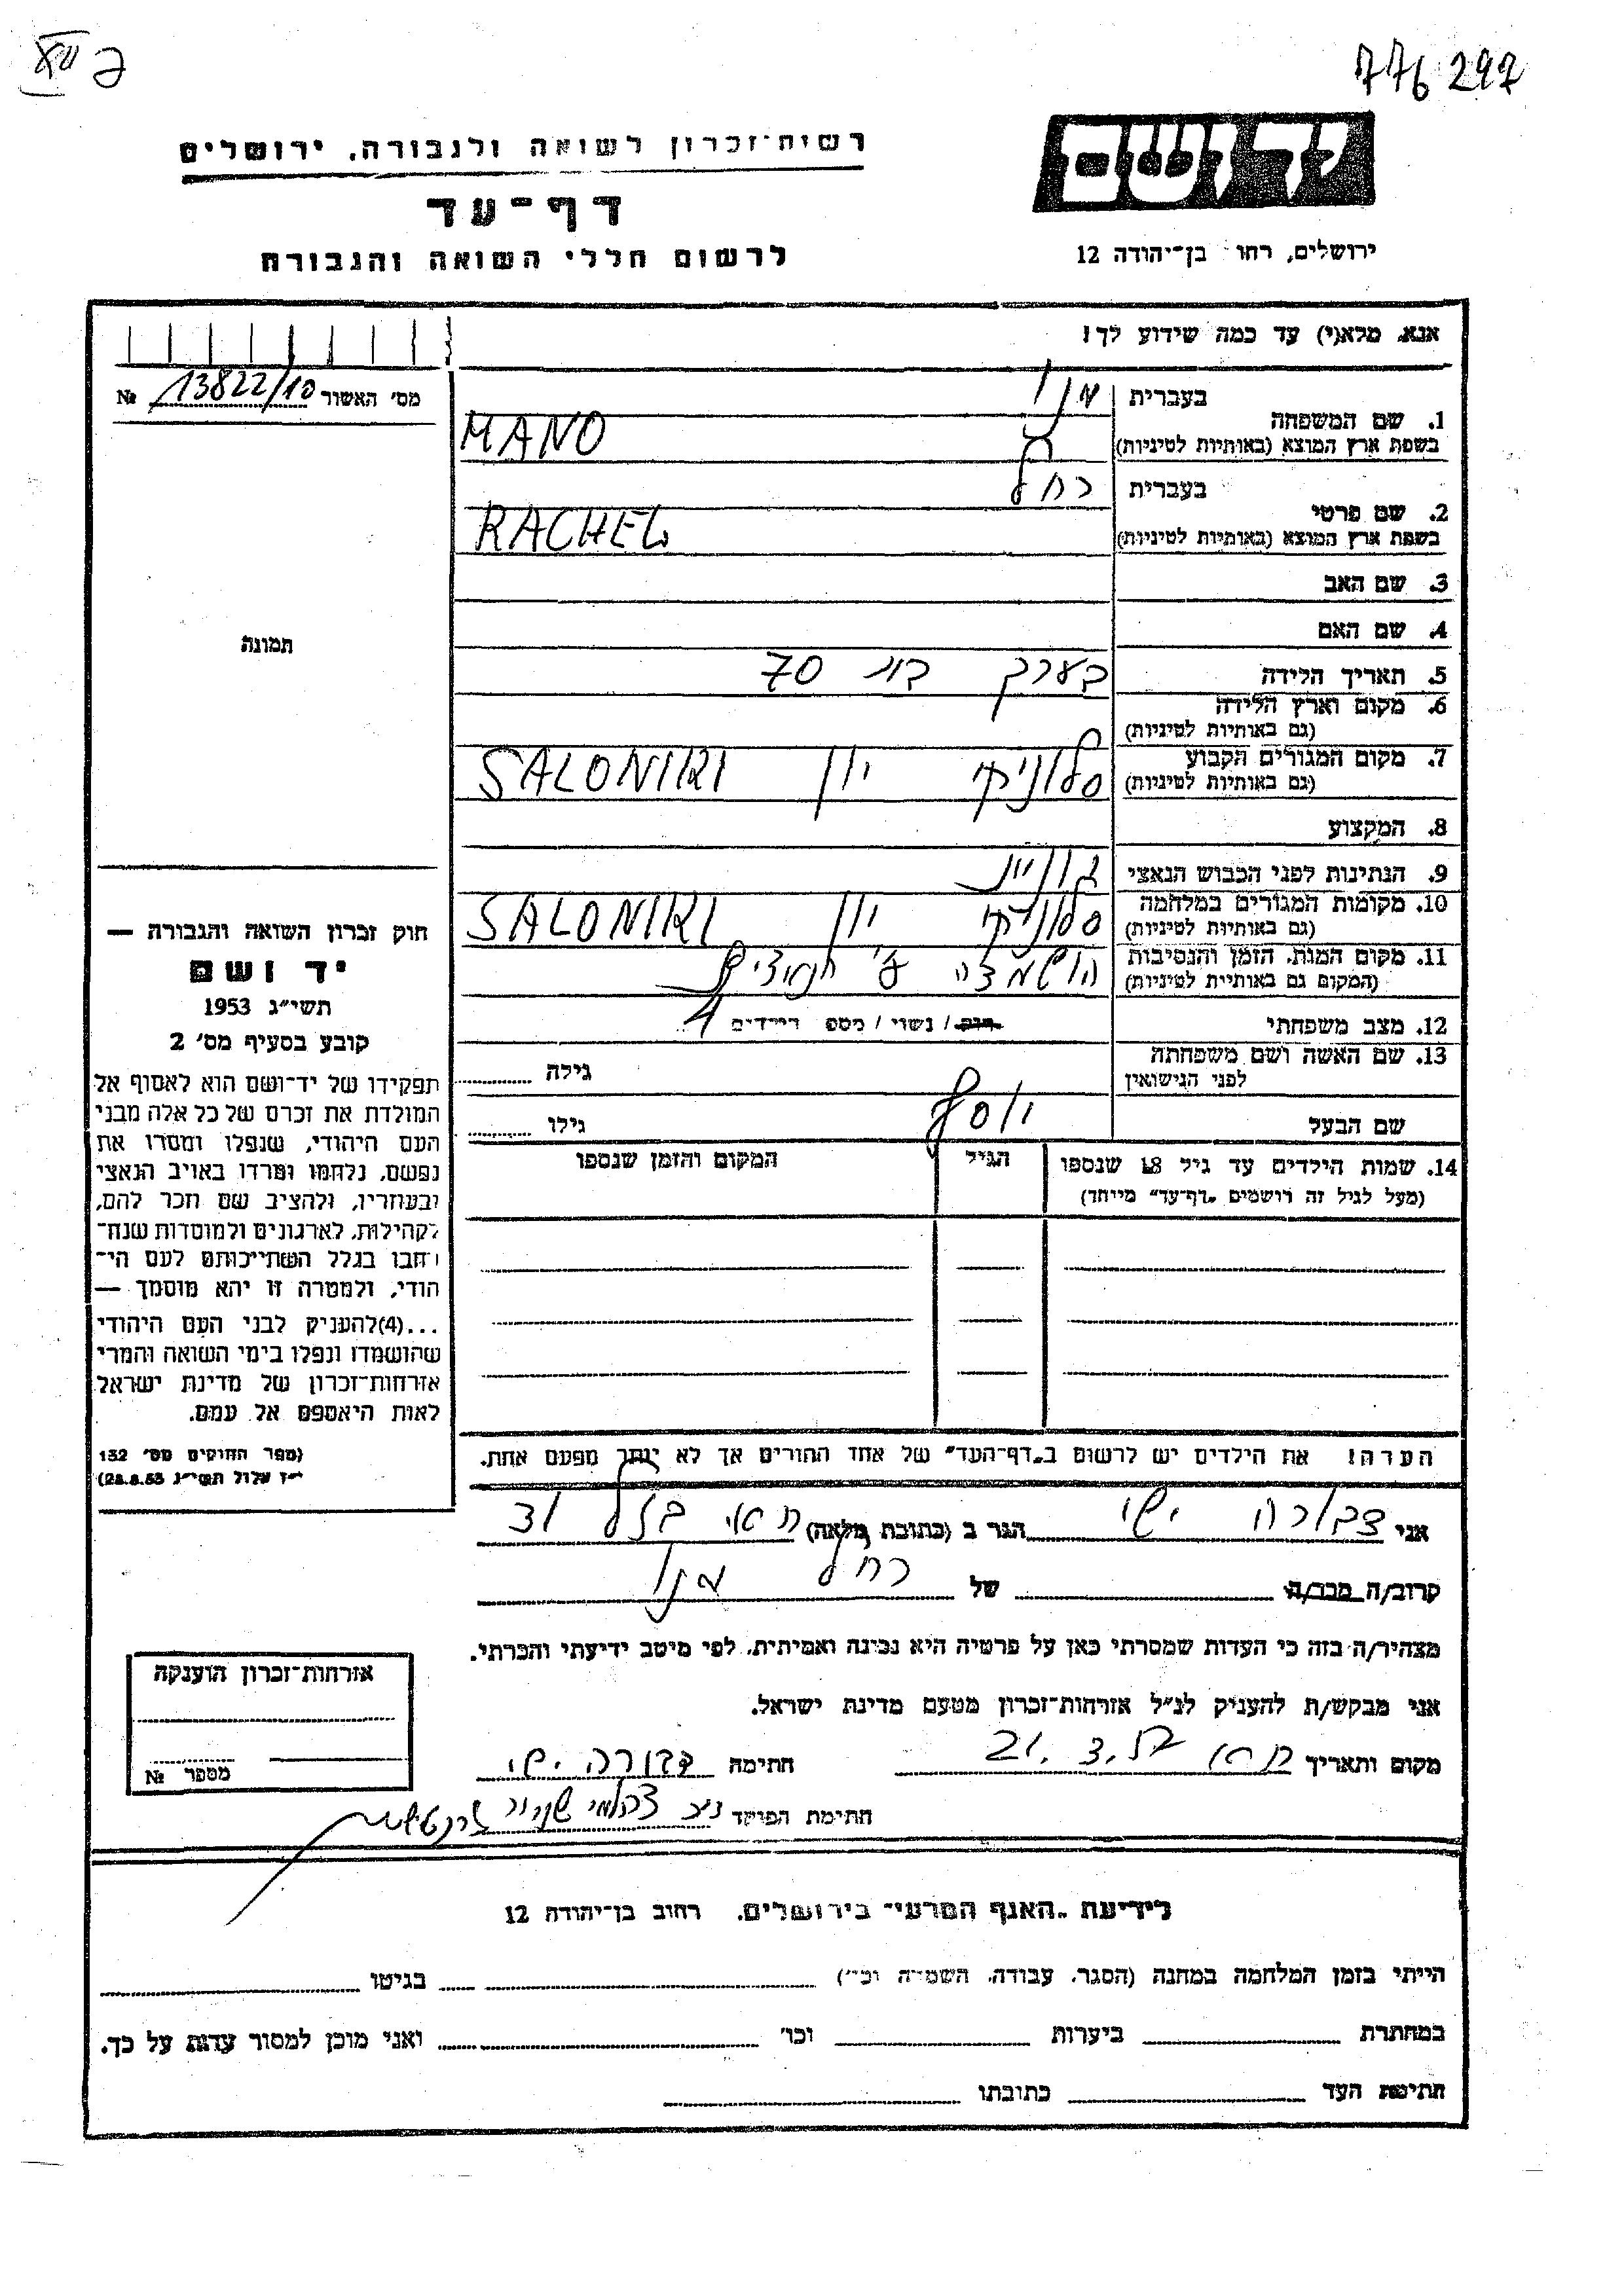 776297
רשות־זכרון לשואה ולגבורה, ירושלים
דף־עד
לרשום חללי השואה והגבורה
יד ושם
ירושלים, רחו׳ בן־יהודה 12
אנא, מלא(י) עד כמה שידוע לך!
מס׳ האשור 13822/10 №
תמונה
1. שם המשפחה
בעברית מנו
בשפת ארץ המוצא (באותיות לטיניות) MANO
2. שם פרטי
בעברית רחל
בשפת ארץ המוצא (באותיות לטיניות) RACHEL
3. שם האב
4. שם האם
5. תאריך הלידה בערך בת 70
6. מקום וארץ הלידה
(גם באותיות לטיניות)
7. מקום המגורים הקבוע סלוניקי יון SALONIKI
(גם באותיות לטיניות)
8. המקצוע
9. הנתינות לפני הכבוש הנאצי
10. מקומות המגורים במלחמה סלוניקי יון SALONIKI
(גם באותיות לטיניות)
11. מקום המות, הזמן והנסיבות הושמדה ע״י הנאצים
(המקום גם באותיות לטיניות)
12. מצב משפחתי רוק / נשוי / מספר הילדים 4
13. שם האשה ושם משפחתה גילה
לפני הנישואין
שם הבעל יוסף גילו
14. שמות הילדים עד גיל 18 שנספו הגיל המקום והזמן שנספו
(מעל לגיל זה רושמים „דף־עד״ מיוחד)
חוק זכרון השואה והגבורה —
יד ושם
תשי״ג 1953
קובע בסעיף מס׳ 2
תפקידו של יד־ושם הוא לאסוף אל
המולדת את זכרם של כל אלה מבני
העם היהודי, שנפלו ומסרו את
נפשם, נלחמו ומרדו באויב הנאצי
ובעוזריו, ולהציב שם וזכר להם,
לקהילות, לארגונים ולמוסדות שנח־
רבו בגלל השתייכותם לעם הי־
הודי, ולמטרה זו יהא מוסמך —
...(4) להעניק לבני העם היהודי
שהושמדו ונפלו בימי השואה והמרי
אזרחות־זכרון של מדינת ישראל
לאות היאספם אל עמם.
(ספר החוקים מס׳ 132
י״ז אלול תשי״ג 28.8.53)
הערה! את הילדים יש לרשום ב„דף־העד״ של אחד ההורים אך לא יותר מפעם אחת.
אני דבורה ישי הגר ב (כתובת מלאה)
קרוב/ה מכר/ה של רחל מנו
מצהיר/ה בזה כי העדות שמסרתי כאן על פרטיה היא נכונה ואמיתית, לפי מיטב ידיעתי והכרתי.
אני מבקש/ת להעניק לנ״ל אזרחות־זכרון מטעם מדינת ישראל.
מקום ותאריך 21.3. חתימה דבורה ישי
חתימת הפוקד
אזרחות־זכרון הוענקה
מספר №
לידיעת „האגף המדעי״ בירושלים, רחוב בן־יהודה 12
הייתי בזמן המלחמה במחנה (הסגר, עבודה, השמדה וכו׳) בגיטו
במחתרת ביערות וכו׳ ואני מוכן למסור עדות על כך.
חתימת העד כתובתו